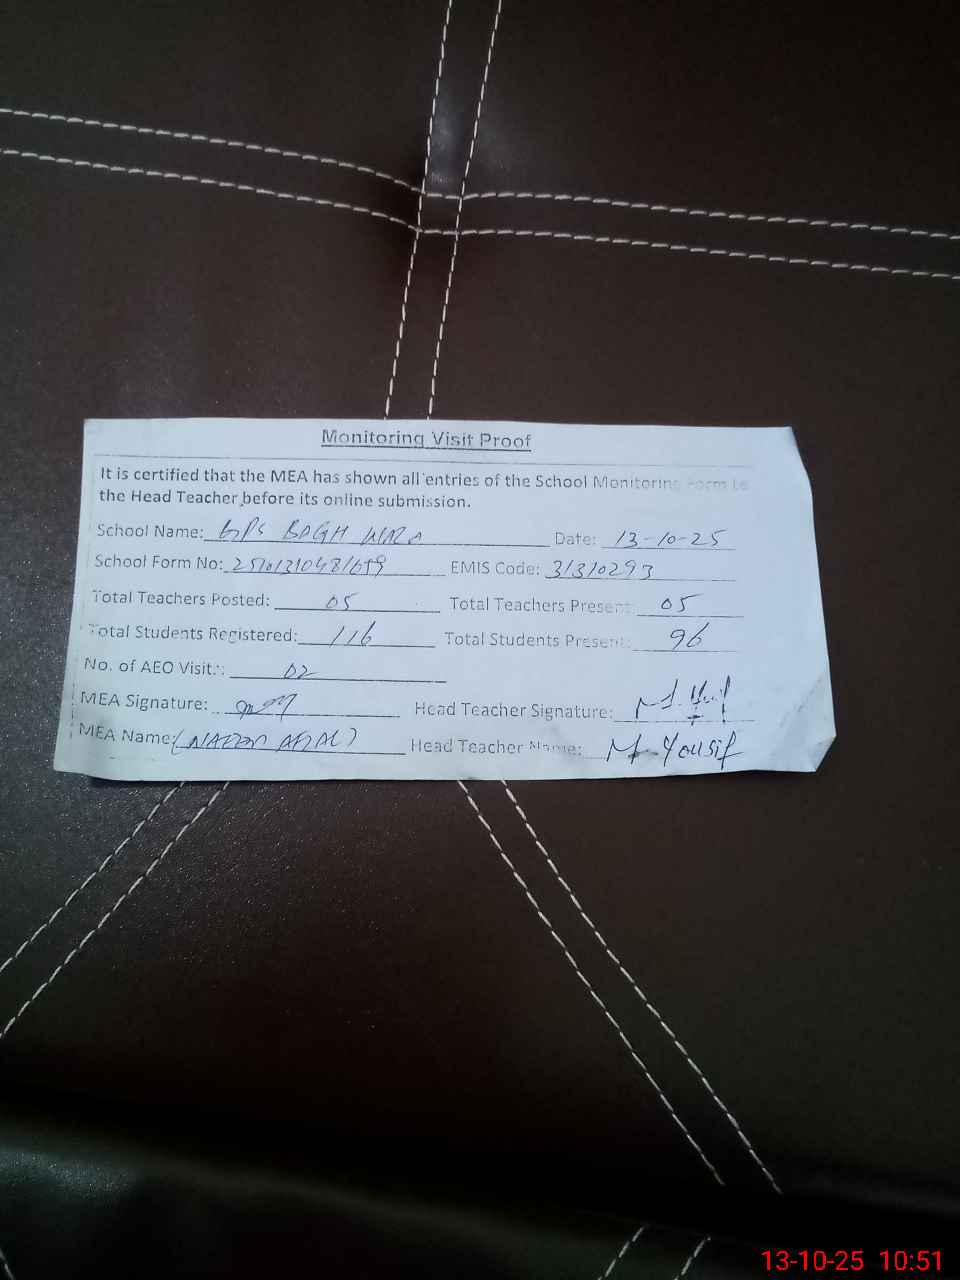 Monitoring Visit Proof
It is certified that the MEA has shown all entries of the School Monitoring Form to
the Head Teacher before its online submission.
School Name: GPS BAGH WALA Date: 13-10-25
School Form No: EMIS Code: 31310293
Total Teachers Posted: 05 Total Teachers Present: 05
Total Students Registered: 116 Total Students Present: 96
No. of AEO Visit:: 02
MEA Signature: Head Teacher Signature:
MEA Name: Head Teacher Name: M. Yousif
13-10-25 10:51